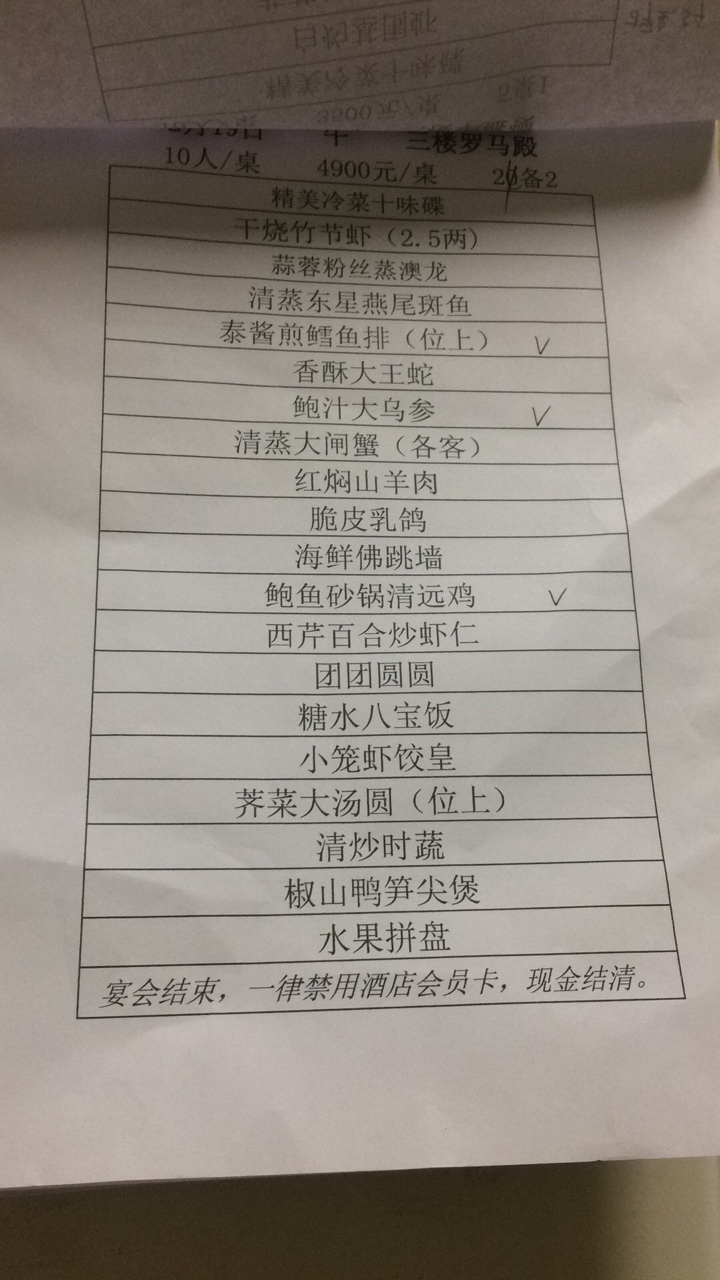 三楼罗马殿
10人/桌 4900元/桌 20备2
精美冷菜十味碟
干烧竹节虾（2.5两）
蒜蓉粉丝蒸澳龙
清蒸东星燕尾斑鱼
泰酱煎鳕鱼排（位上） V
香酥大王蛇
鲍汁大乌参 V
清蒸大闸蟹（各客）
红焖山羊肉
脆皮乳鸽
海鲜佛跳墙
鲍鱼砂锅清远鸡 V
西芹百合炒虾仁
团团圆圆
糖水八宝饭
小笼虾饺皇
荠菜大汤圆（位上）
清炒时蔬
椒山鸭笋尖煲
水果拼盘
宴会结束，一律禁用酒店会员卡，现金结清。